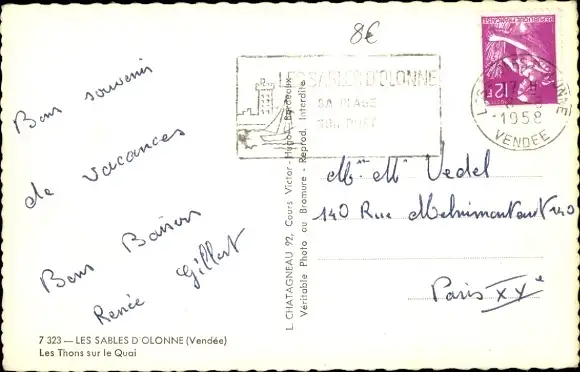 8€
Bons souvenirs
de vacances
Bons Baisers
Renée Gillert
7 323 — LES SABLES D'OLONNE (Vendée)
Les Thons sur le Quai
L. CHATAGNEAU 92, Cours Victor-Hugo, Bordeaux
Véritable Photo au Bromure - Reprod. Interdite
LES SABLES D'OLONNE
SA PLAGE
SON PORT
REPUBLIQUE FRANÇAISE
12F
1958
VENDEE
Mme Mr Vedel
140 Rue Menilmontant 140
Paris XXe